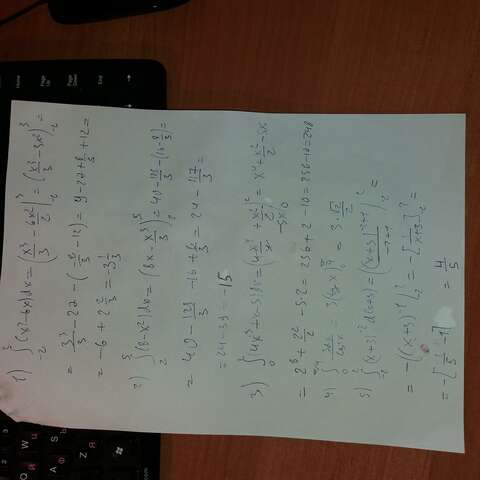 1) ∫₋₂³ (x²-6x)dx = (x³/3 - 6x²/2)|₋₂³ = (x³/3 - 3x²)₋₂³ =
= 3³/3 - 27 - (-8/3 - 12) = 9 - 27 + 8/3 + 12 =
= -6 + 2 2/3 = 3 1/3
2) ∫₂⁵ (8-x²)dx = (8x - x³/3)₂⁵ = 40 - 125/3 - (16 - 8/3)
= 40 - 125/3 - 16 + 8/3 = 24 - 117/3 =
= 24 - 39 = -15
3) ∫₀ (4x³+x-5)dx = (4x⁴/4 + x²/2 - 5x)₀ = x⁴ + x²/2 - 5x
= 2⁸ + 2²/2 - 5·2 = 256 + 2 - 10 = 256 + 10 = 248
4) ∫₀ 3dx/cos²x = 3(tgx)
5) ∫₋₂² (x+3)⁻² d(x+3) = ((x+3)⁻²⁺¹/-2+1)₋₂² =
= -((x+3)⁻¹)₋₂² = -[1/x+3]₋₂² =
= -[1/5 - 1] = 4/5
Page Up
Page Down
End